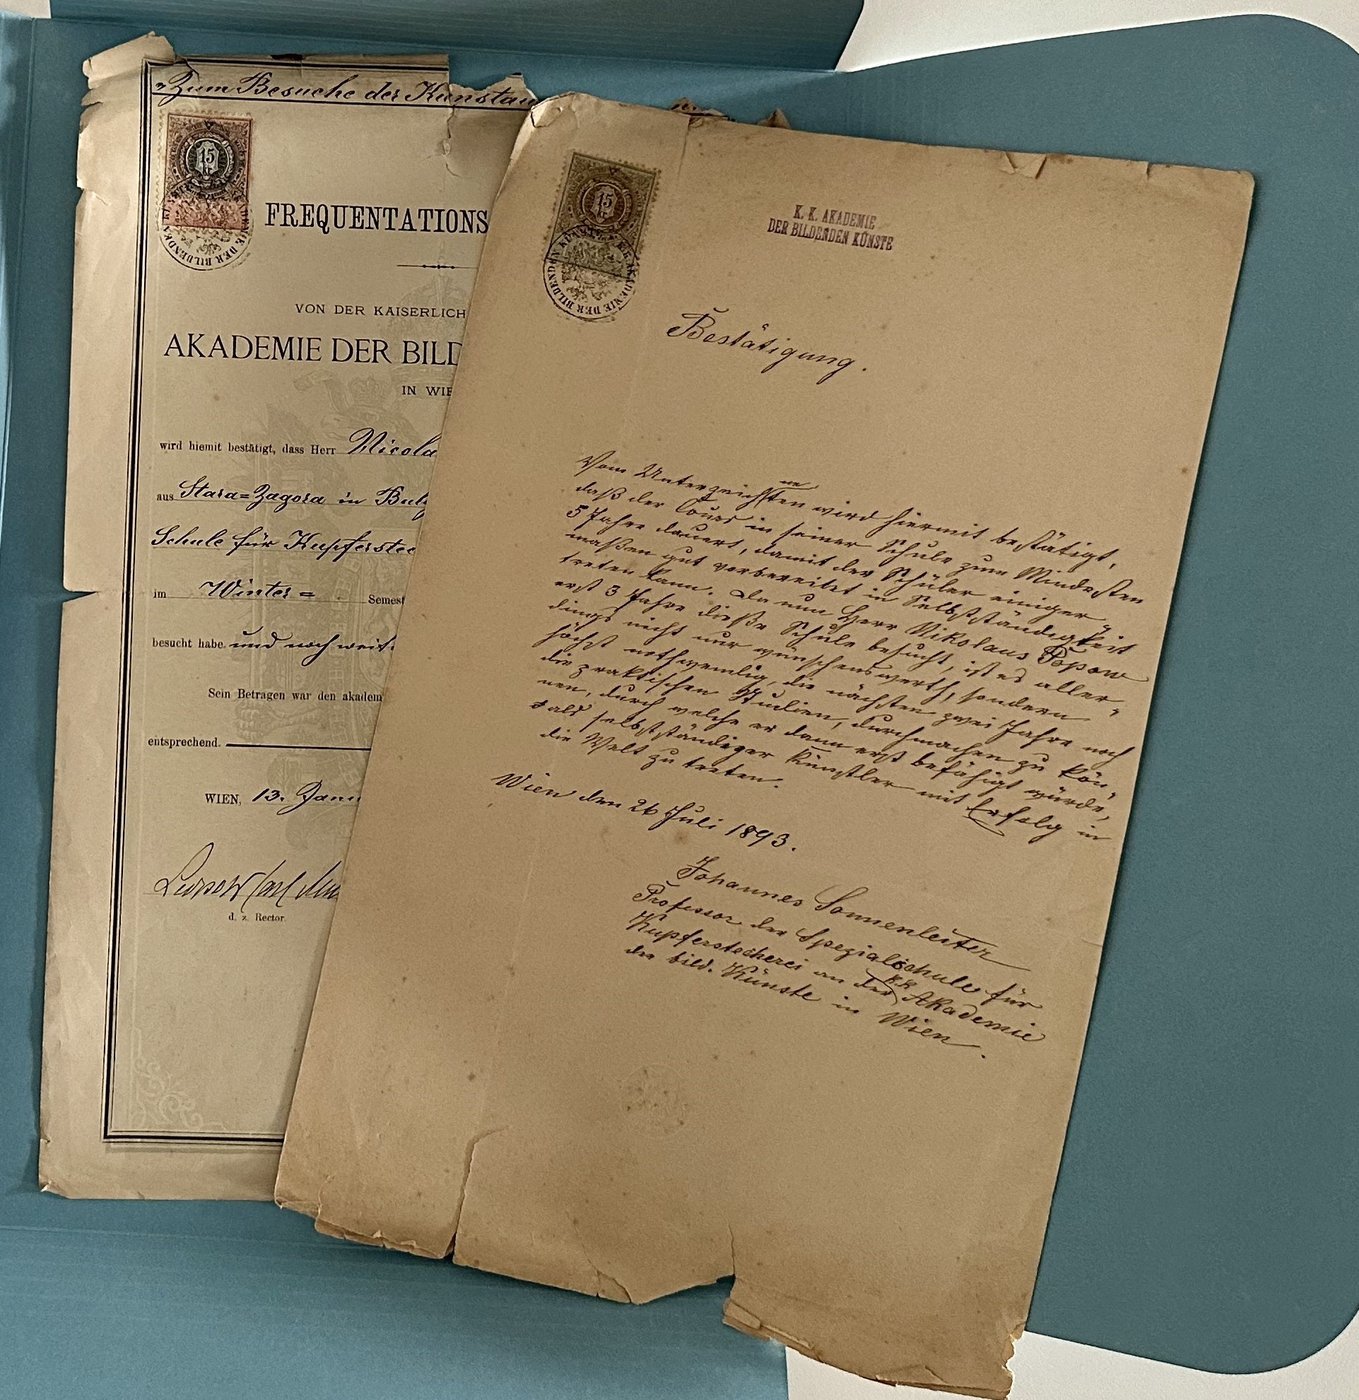 "Zum Besuche der Kunstau
15
kr
FREQUENTATIONS
VON DER KAISERLICH
AKADEMIE DER BILD
IN WIE
wird hiemit bestätigt, dass Herr Nicola
aus Stara=Zagora in Bulg
Schule für Kupferstec
im Winter= Semest
besucht habe und noch weit
Sein Betragen war den akadem
entsprechend.
WIEN, 13. Jann
Leopold Carl Mü
d. z. Rector
15
kr
K. K. AKADEMIE
DER BILDENDEN KÜNSTE
AKADEMIE DER BILDENDEN KÜNSTE
Bestätigung.
Vom Unterzeichneten wird hiermit bestätigt,
daß der Cours in seiner Schule zum Mindesten
5 Jahre dauert, damit der Schüler einiger"
maßen gut vorbereitet in Selbstständigkeit
treten kann. Da nun Herr Nikolaus Popow
erst 3 Jahre dieße Schule besucht, ist es aller"
dings nicht nur wünschenswerth, sondern
höchst nothwendig, die nächsten zwei Jahre noch
die praktischen Studien, durchmachen zu kön"
nen, durch welche er dann erst befähigt würde,
als selbstständiger Künstler mit Erfolg in
die Welt zu treten.
Wien den 26 Juli 1893.
Johannes Sonnenleiter
Professor der Spezialschule für
Kupferstecherei an der kk Akademie
der bild. Künste in Wien.